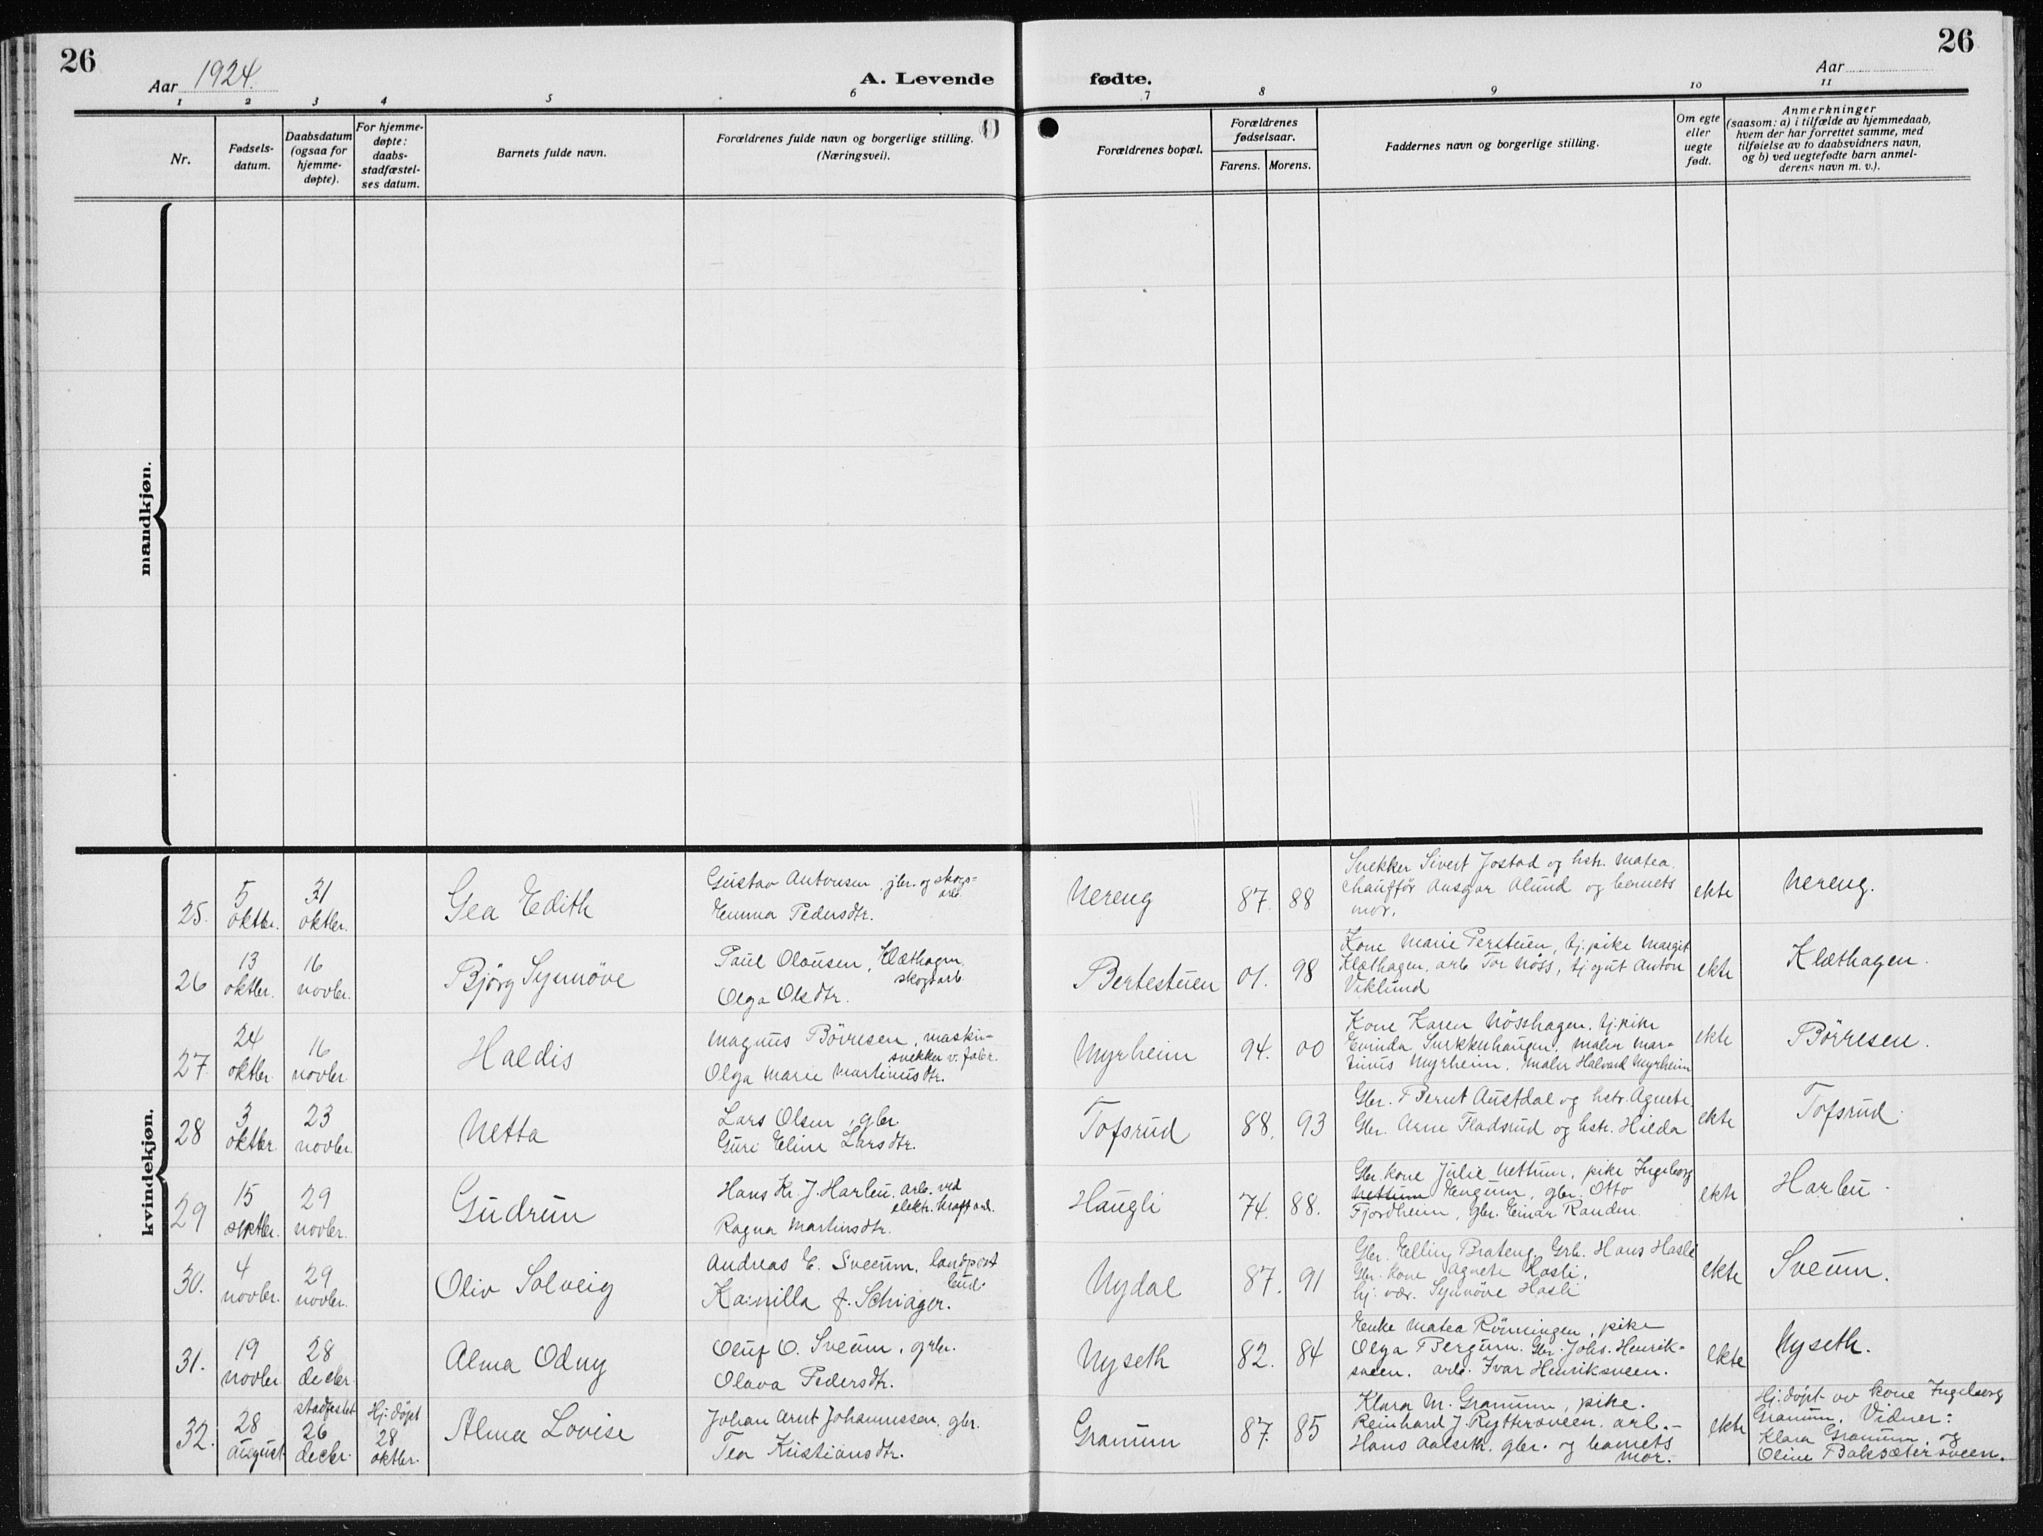 26
26
Aar 1924.
A. Levende
fødte.
Aar
1 2 3 4 5 6 7 8 9 10 11
Nr.
Fødsels-
datum.
Daabsdatum
(ogsaa for
hjemme-
døpte).
For hjemme-
døpte:
daabs-
stadfæstel-
ses datum.
Barnets fulde navn.
Forældrenes fulde navn og borgerlige stilling.
(Næringsvei).
Forældrenes bopæl.
Forældrenes
fødselsaar.
Farens. Morens.
Faddernes navn og borgerlige stilling.
Om egte
eller
uegte
født.
Anmerkninger
(saasom: a) i tilfælde av hjemmedaab,
hvem der har forrettet samme, med
tilføielse av to daabsvidners navn,
og b) ved uegtefødte barn anmel-
derens navn m. v.).
mandkjøn.
kvindekjøn.
25.
5
oktbr.
31
oktbr.
Gea Edith
Gustav Antonsen, gbr. og skogs-
arb.
Emma Pedersdtr.
Nereng
87. 88
Snekker Sivert Jostad og hstr. Matea.
Chauffør Ansgar Alund og barnets
mor.
ekte
Nereng.
26
13
oktbr.
16
novbr.
Bjørg Synnøve
Paul Olausen, Klæthagen,
skogsarb.
Olga Olsdtr.
Bertestuen
01. 98
Kone Marie Perstuen, tj.pike Margit
Klæthagen, arb. Tor Nøss, tj.gut Anton
Viklund
ekte
Klæthagen.
27
24
oktbr.
16
novbr.
Haldis
Magnus Børresen, maskin-
snekker v. fabr.
Olga Marie Martinusdtr.
Myrheim
94. 00
Kone Karen Nøsshagen, tj.pike
Evinda Snekkerhaugen, maler Mar-
tinus Myrheim, maler Halvard Myrheim
ekte
Børresen.
28
3
oktbr.
23
novbr.
Netta
Lars Olsen, gbr.
Guri Eline Larsdtr.
Tofsrud
88. 93
Gbr. Bernt Austdal og hstr. Agnete.
Gbr. Arne Fladsrud og hstr. Hilda
ekte
Tofsrud.
29
15
septbr.
29
novbr.
Gudrun
Hans Kr. J. Harbu, arb. ved
elektr. kraftanl.
Ragna Martinsdtr.
Haugli
74. 88.
Gbr.kone Julie Nettum, pike Ingeborg
Nettum Engum, gbr. Otto
Fjordheim, gbr. Einar Randen
ekte
Harbu.
30.
4
novbr.
29
novbr.
Oliv Solveig
Andreas E. Sveum, landpost-
bud.
Kamilla f. Schiager.
Nydal
87. 91
Gbr. Elling Brateng, Grb. Hans Hasli
Gbr. kone Agnete Hasli,
hj. vær. Synnøve Hasli
ekte
Sveum.
31.
19
novbr
28
decbr.
Alma Odny
Oluf O. Sveum, grbr.
Olava Pedersdtr.
Nyseth
82. 84
Enke Matea Rønningen, pike
Olga Bergum. Gbr. Johs. Henrik-
sveen. arb. Ivar Henriksveen.
ekte
Nyseth.
32.
28
august
stadfestet
26
decbr.
Hj.døpt
28
oktbr.
Alma Lovise
Johan Arnt Johannessen, gbr.
Tea Kristiansdtr.
Granum
87. 85
Klara M. Granum, pike.
Reinhard J. Rytteraveen, arb.-
Hans Aalseth, gbr. og barnets
mor.
ekte
Hj.døpt av kone Ingeborg
Granum. Vidner:
Klara Granum, og
Oline Baksætersveen.